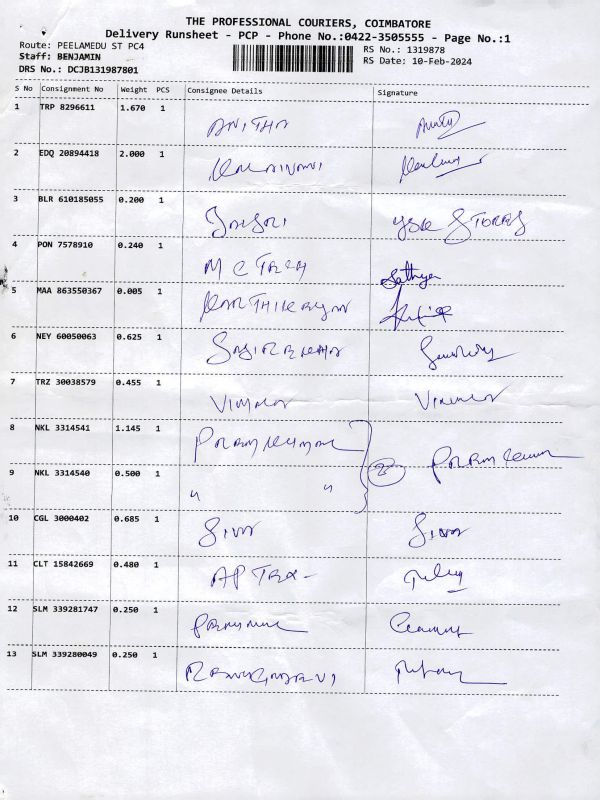 THE PROFESSIONAL COURIERS, COIMBATORE
Delivery Runsheet - PCP - Phone No.:0422-3505555 - Page No.:1
Route: PEELAMEDU ST PC4
Staff: BENJAMIN
DRS No.: DCJB131987801
RS No.: 1319878
RS Date: 10-Feb-2024
S No Consignment No Weight PCS Consignee Details Signature
1 TRP 8296611 1.670 1 ANITHA
2 EDQ 20894418 2.000 1
3 BLR 610185055 0.200 1 STORES
4 PON 7578910 0.240 1 M C TREH Sathya
5 MAA 863550367 0.005 1 KARTHIKEYAN
6 NEY 60050063 0.625 1
7 TRZ 30038579 0.455 1 VIMALA VIMALA
8 NKL 3314541 1.145 1
9 NKL 3314540 0.500 1 " " 2
10 CGL 3000402 0.685 1 SIVA SIVA
11 CLT 15842669 0.480 1 AP TEX
12 SLM 339281747 0.250 1
13 SLM 339280049 0.250 1